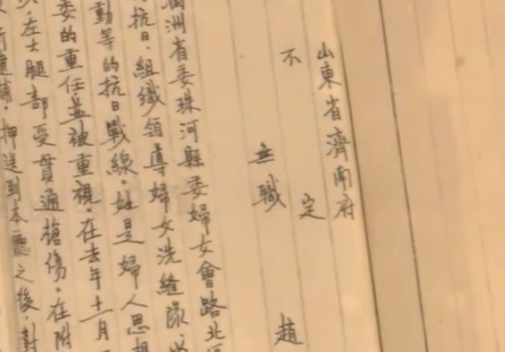 山東省濟南府
不定
無職
趙
洲省委珠河縣委婦女會路北
抗日、組織領導婦女洗縫隊
動等的抗日戰線。她是婦人思想
委的重任並被重視。在去年十一月
左士腿部受貫通槍傷。在附
逮捕。押送到本廳之後，對